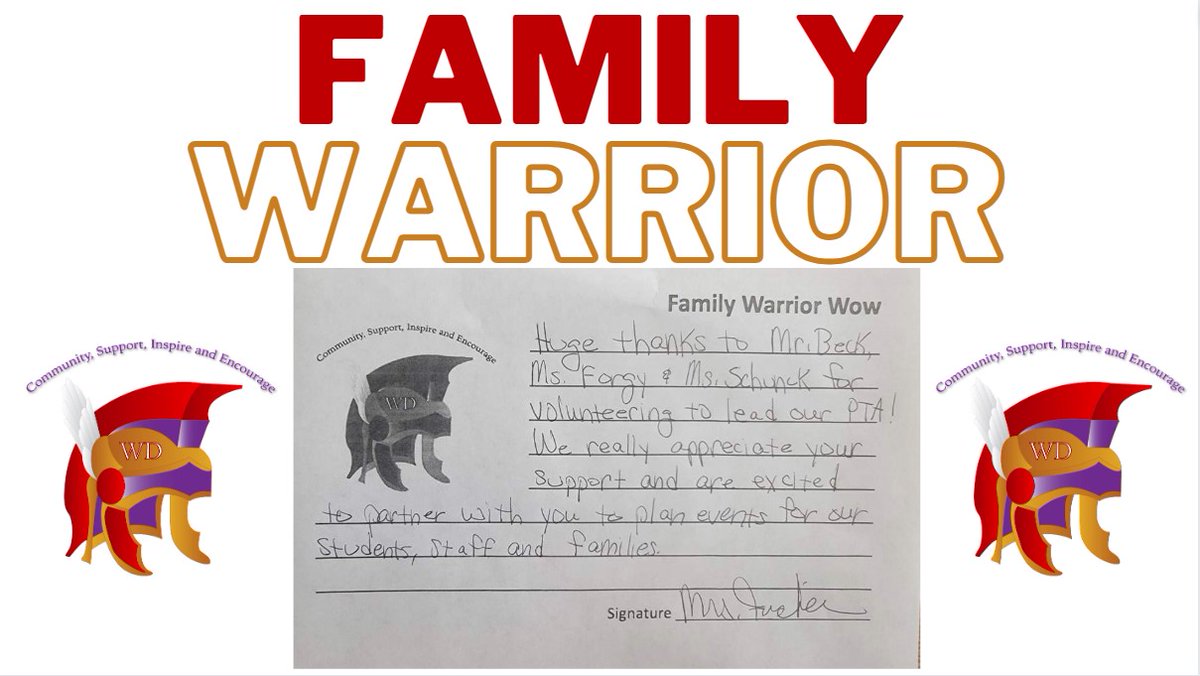 FAMILY
WARRIOR
Community, Support, Inspire and Encourage
WD
Family Warrior Wow
Community, Support, Inspire and Encourage
WD
Huge thanks to Mr. Beck,
Ms. Forgy & Ms. Schunck for
volunteering to lead our PTA!
We really appreciate your
support and are excited
to partner with you to plan events for our
students, staff and families.
Signature Mrs.
Community, Support, Inspire and Encourage
WD